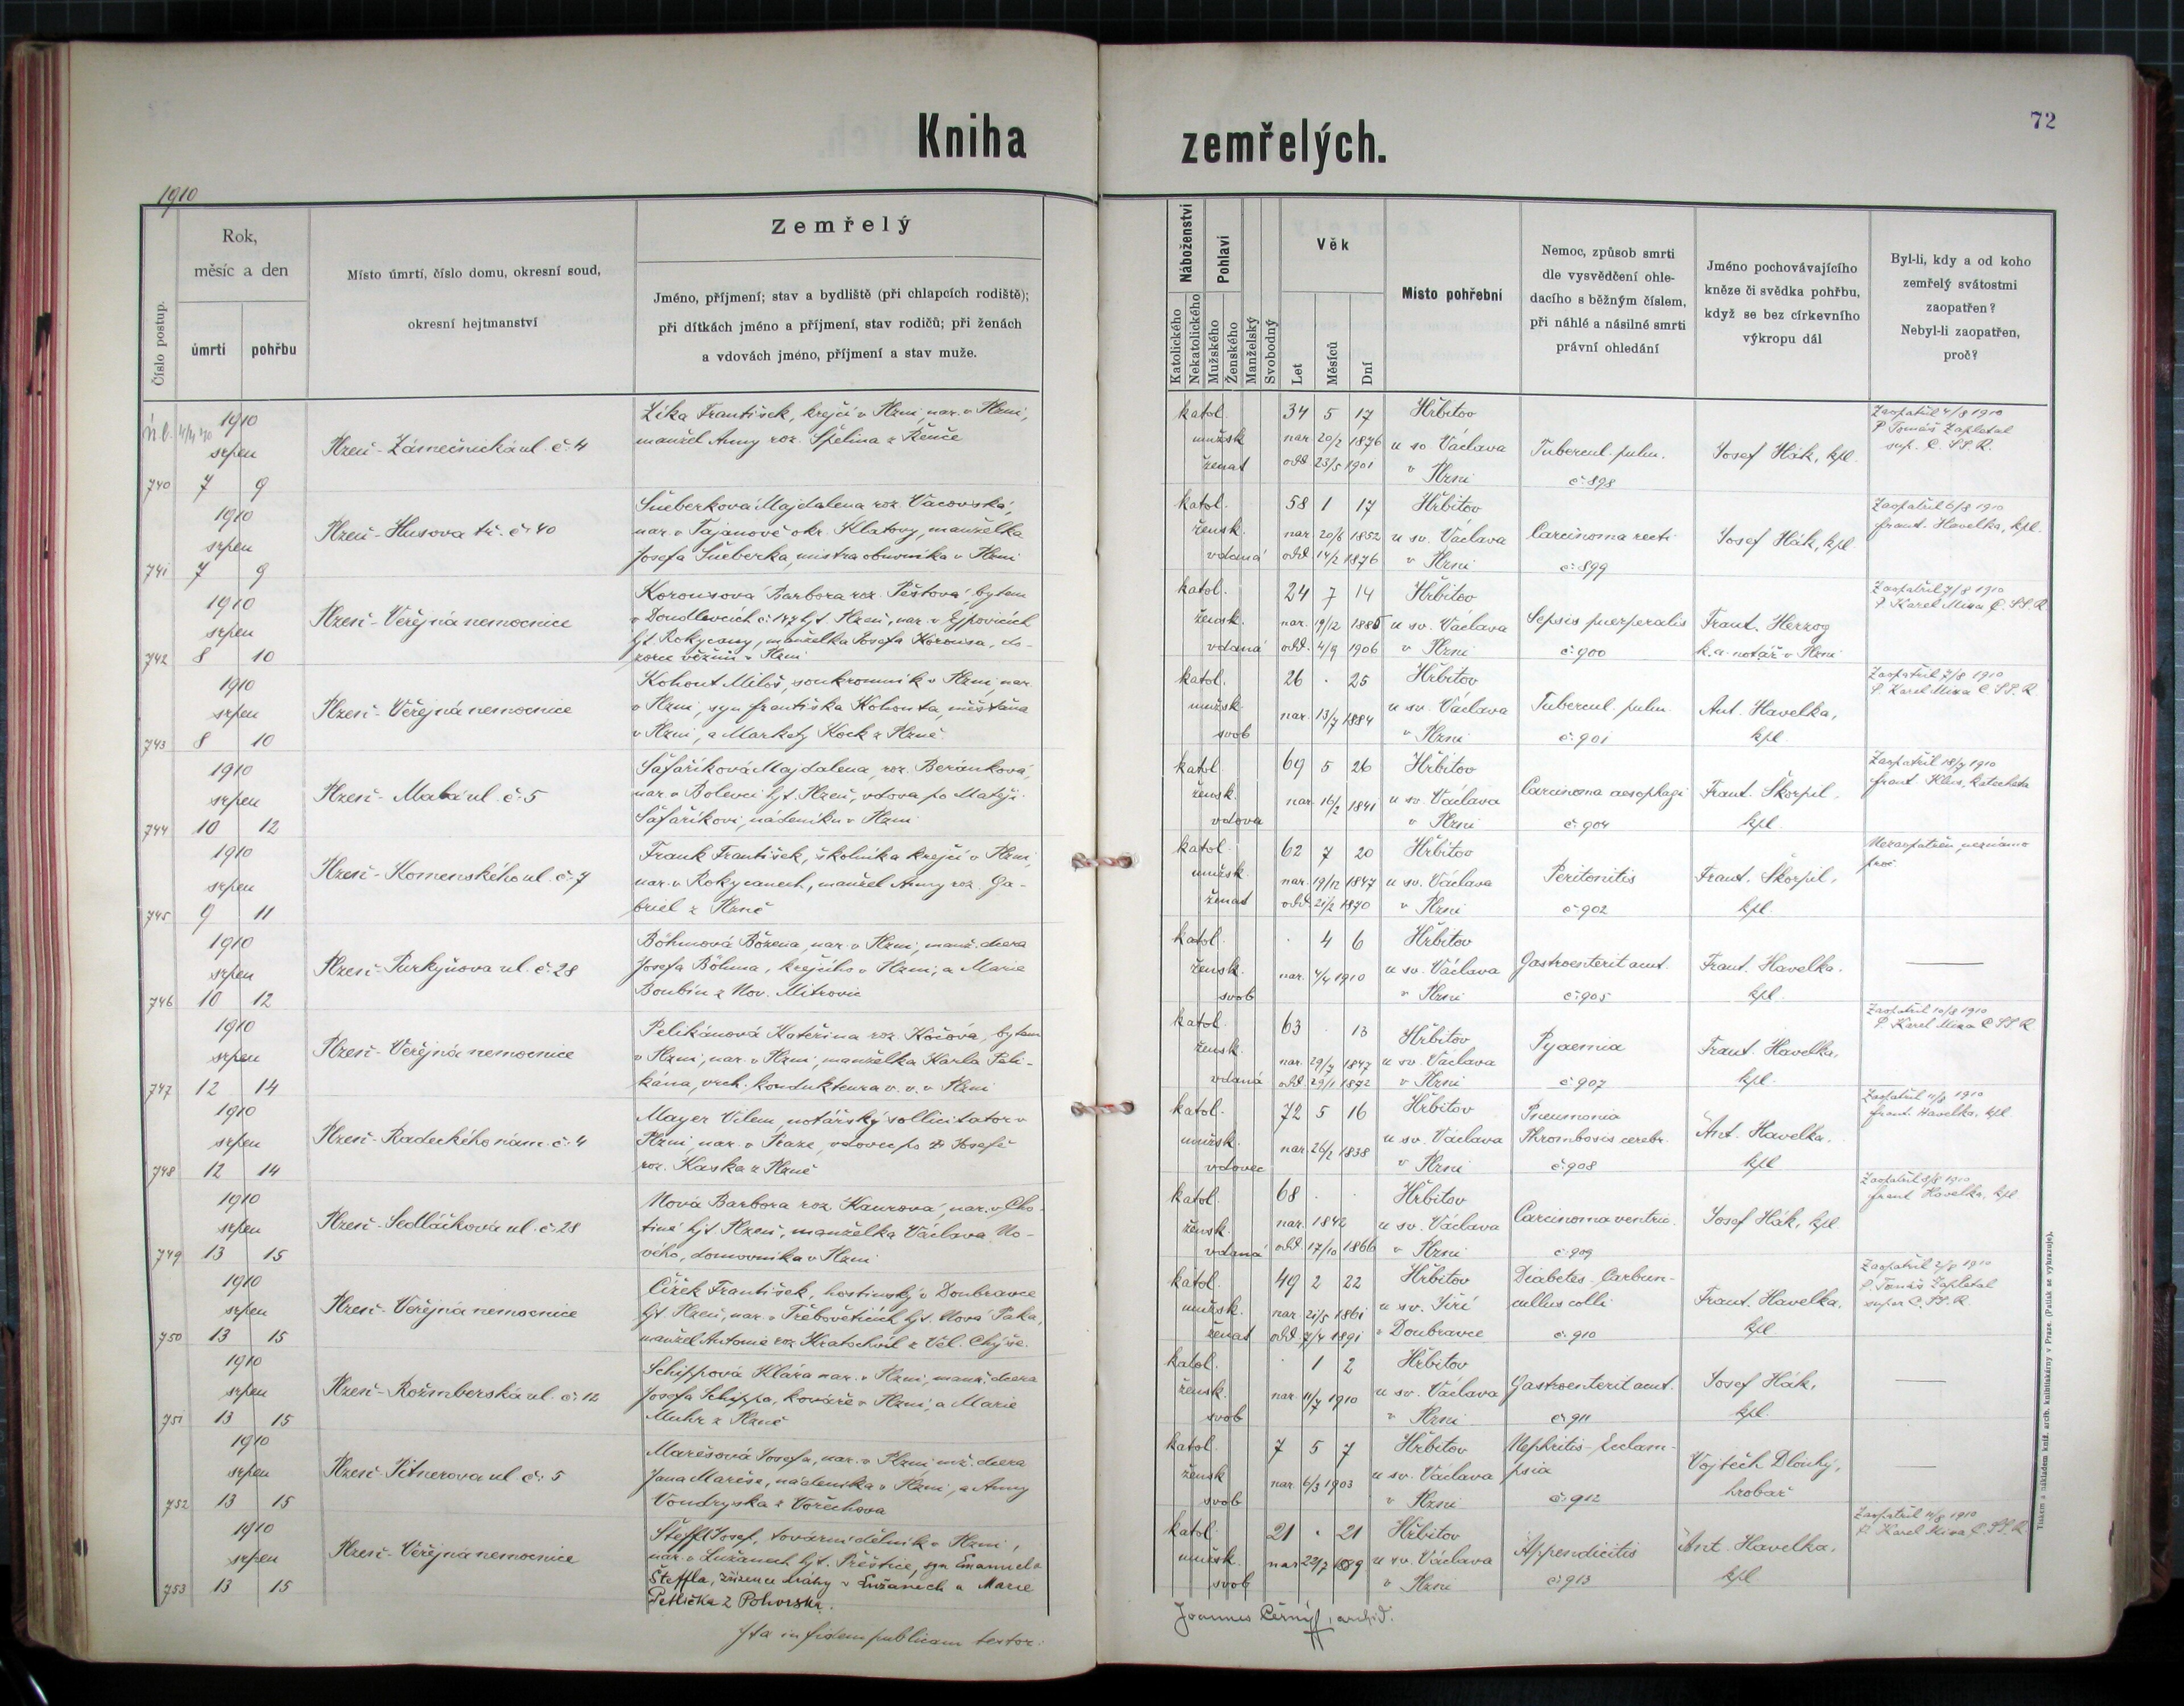 Kniha
zemřelých.
72
1910
Číslo postup.
Rok,
měsíc a den
úmrtí
pohřbu
Místo úmrtí, číslo domu, okresní soud,
okresní hejtmanství
Zemřelý
Jméno, příjmení; stav a bydliště (při chlapcích rodiště);
při dítkách jméno a příjmení, stav rodičů; při ženách
a vdovách jméno, příjmení a stav muže.
Náboženství
Katolického
Nekatolického
Pohlaví
Mužského
Ženského
Manželský
Svobodný
Věk
Let
Měsíců
Dní
Místo pohřební
Nemoc, způsob smrti
dle vysvědčení ohle-
dacího s běžným číslem,
při náhlé a násilné smrti
právní ohledání
Jméno pochovávajícího
kněze či svědka pohřbu,
když se bez církevního
výkropu dál
Byl-li, kdy a od koho
zemřelý svátostmi
zaopatřen?
Nebyl-li zaopatřen,
proč?
1910
srpen
740 7 9
Plzeň - Zámečnická ul. č. 4
Zíka František, krejčí v Plzni, nar. v Plzni,
manžel Anny roz. Spělina z Řenče
katol. 34 5 17 Hřbitov
mužsk. nar. 20/2 1876 u sv. Václava
ženat odd. 23/5 1901 v Plzni
Tubercul. pulm.
č. 898
Josef Hák, kpl.
Zaopatřil 4/8 1910
P Tomáš Zapletal
sup. C. SS. R.
1910
srpen
741 7 9
Plzeň - Husova tř. č. 40
Šneberková Majdalena roz. Vacovská,
nar. v Tajanově okr. Klatovy, manželka
Josefa Šneberka, mistra obuvníka v Plzni
katol. 58 1 17 Hřbitov
žensk. nar. 20/6 1852 u sv. Václava
vdaná odd. 14/2 1876 v Plzni
Carcinoma recti
č. 899
Josef Hák, kpl
Zaopatřil 6/8 1910
frant. Havelka, kpl.
1910
srpen
742 8 10
Plzeň - Veřejná nemocnice
Korousová Barbora roz. Peštová, bytem
v Doudlevcích č. 147 hjt. Plzeň, nar. v Ejpovicích
hjt. Rokycany, manželka Josefa Korousa, do-
zorce věznů v Plzni
katol. 24 7 14 Hřbitov
žensk. nar. 19/12 1885 u sv. Václava
vdaná odd. 4/9 1906 v Plzni
Sepsis puerperalis
č. 900
Frant. Herzog
k. a. notář v Plzni
Zaopatřil 7/8 1910
P. Karel Mixa C. SS. R
1910
srpen
743 8 10
Plzeň - Veřejná nemocnice
Kohout Miloš, soukromník v Plzni, nar.
v Plzni, syn františka Kohouta, měšťana
v Plzni, a Markety Kock z Plzně
katol. 26 . 25 Hřbitov
mužsk. nar. 13/7 1884 u sv. Václava
svob v Plzni
Tubercul. pulm.
č. 901
Ant. Havelka,
kpl.
Zaopatřil 7/8 1910
P. Karel Mixa C SS. R
1910
srpen
744 10 12
Plzeň - Malá ul. č. 5
Šafaříková Majdalena, roz. Beránková,
nar. v Bolevci hjt. Plzeň, vdova po Matěji
Šafaříkovi, nádeníku v Plzni
katol. 69 5 26 Hřbitov
žensk. nar. 16/2 1841 u sv. Václava
vdova v Plzni
Carcinoma aesophagi
č. 904
Frant. Škorpil,
kpl.
Zaopatřil 18/7 1910
frant. Klus, katecheta
1910
srpen
745 9 11
Plzeň - Komenského ul. č. 7
Frank František, školník a krejčí v Plzni,
nar. v Rokycanech, manžel Anny roz. Ga-
briel z Plzně
katol. 62 7 20 Hřbitov
mužsk. nar. 19/12 1847 u sv. Václava
ženat odd. 21/2 1870 v Plzni
Peritonitis
č. 902
Frant. Škorpil,
kpl.
Nezaopatřen, neznámo
proč
1910
srpen
746 10 12
Plzeň - Purkyňova ul. č. 28
Böhmová Božena, nar. v Plzni, manž. dcera
Josefa Böhma, krejčího v Plzni, a Marie
Boubín z Nov. Mitrovic
katol. . 4 6 Hřbitov
žensk. nar. 4/4 1910 u sv. Václava
svob v Plzni
Gastroenterit acut.
č. 905
Frant. Havelka,
kpl.
1910
srpen
747 12 14
Plzeň - Veřejná nemocnice
Pelikánová Kateřina roz. Kočová, bytem
v Plzni, nar. v Plzni, manželka Karla Peli-
kána, vrch. kondukteura v. v. v Plzni
katol. 63 . 13 Hřbitov
žensk. nar. 29/7 1847 u sv. Václava
vdaná odd. 29/1 1872 v Plzni
Pyaemia
č. 907
Frant. Havelka,
kpl.
Zaopatřil 10/8 1910
P. Karel Mixa C SS. R
1910
srpen
748 12 14
Plzeň - Radeckého nám. č. 4
Mayer Vilem, notářský sollicitator v
Plzni, nar. v Praze, vdovec po Josefě
roz. Kaska z Plzně
katol. 72 5 16 Hřbitov
mužsk. nar. 26/2 1838 u sv. Václava
vdovec v Plzni
Pneumonia
Thrombosis cerebr.
č. 908
Ant. Havelka,
kpl
Zaopatřil 11/8 1910
frant. Havelka, kpl
1910
srpen
749 13 15
Plzeň - Sedláčková ul. č. 28
Nová Barbora roz. Kaurová, nar. v Cho-
tiné hjt. Plzeň, manželka Václava No-
vého, domovníka v Plzni
katol. 68 . . Hřbitov
žensk. nar. 1842 u sv. Václava
vdaná odd. 17/10 1866 v Plzni
Carcinoma ventric.
č. 909
Josef Hák, kpl
Zaopatřil 8/8 1910
frant Havelka, kpl
1910
srpen
750 13 15
Plzeň - Veřejná nemocnice
Čížek František, hostinský v Doubravce
hjt. Plzeň, nar. v Třebověticích hjt. Nová Paka,
manžel Antonie roz. Kratochvíl z Vel. Chýše.
katol. 49 2 22 Hřbitov
mužsk. nar. 21/5 1861 u sv. Jiří
ženat odd. 7/4 1891 v Doubravce
Diabetes. Carbun-
cullus colli
č. 910
Frant. Havelka,
kpl
Zaopatřil 2/8 1910
P. Tomáš Zapletal
super C. SS. R.
1910
srpen
751 13 15
Plzeň - Rožmberská ul. č. 12
Schippová Klára nar. v Plzni, manž. dcera
Josefa Schippa, kováře v Plzni, a Marie
Muhr z Plzně
katol. . 1 2 Hřbitov
žensk. nar. 11/7 1910 u sv. Václava
svob v Plzni
Gastroenterit acut.
č. 911
Josef Hák,
kpl.
1910
srpen
752 13 15
Plzeň - Pitnerova ul. č. 5
Marešová Josefa, nar. v Plzni, mž. dcera
Jana Mareše, nádeníka v Plzni, a Anny
Vondryska z Vořechova
katol. 7 5 7 Hřbitov
žensk nar. 6/3 1903 u sv. Václava
svob v Plzni
Nephritis - Eclam-
psia
č. 912
Vojtěch Dlouhý,
hrobař
1910
srpen
753 13 15
Plzeň - Veřejná nemocnice
Šteffl Josef, tovární dělník v Plzni,
nar. v Lužanech hjt. Přeštice, syn Emanuela
Šteffla, zřízence dráhy v Lužanech a Marie
Petlička z Pohorska.
katol. 21 . 21 Hřbitov
mužsk. nar 23/7 1889 u sv. Václava
svob v Plzni
Appendicitis
č. 913
Ant. Havelka,
kpl
Zaopatřil 11/8 1910
P. Karel Mixa C. SS. R
Ita in fidem publicam testor:
Joannes Černý, archid.
Tiskem a nákladem kníž. arcib. knihtiskárny v Praze. (Patisk se vyhrazuje).